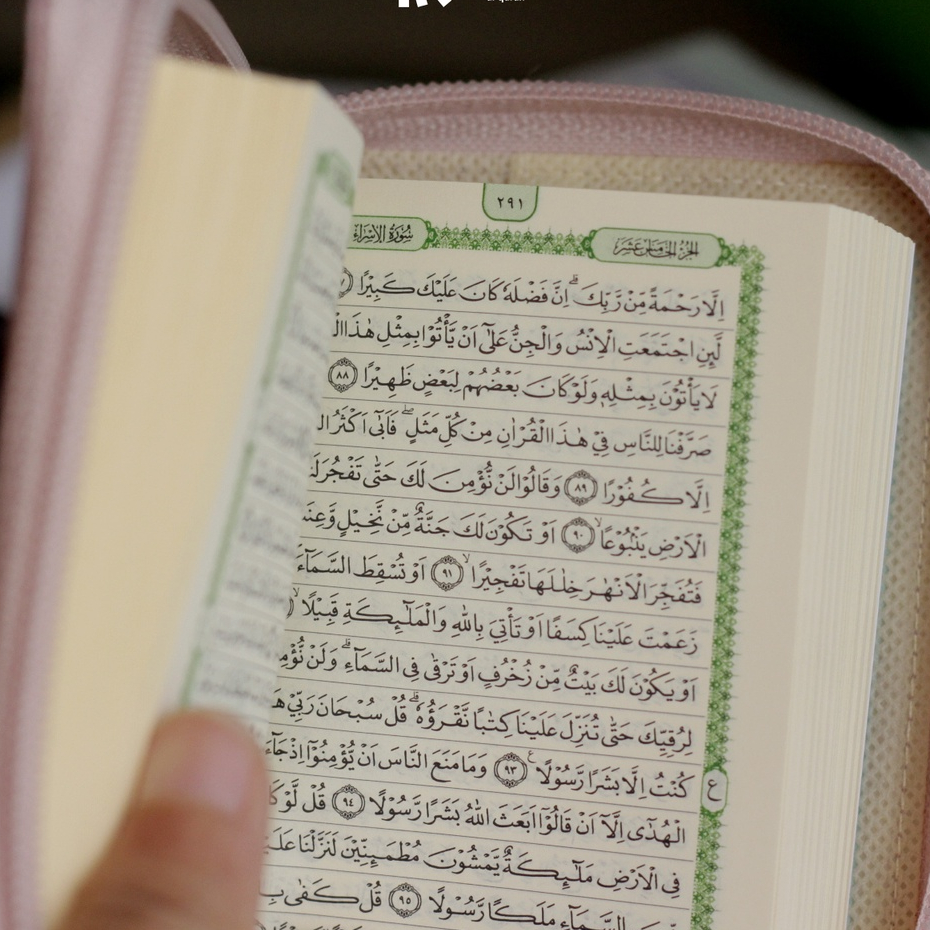 ٢٩١
الجزء الخامس عشر
سورة الإسراء
اِلَّا رَحْمَةً مِّنْ رَّبِّكَ ۗ اِنَّ فَضْلَهٗ كَانَ عَلَيْكَ كَبِيْرًا
لَّىِٕنِ اجْتَمَعَتِ الْاِنْسُ وَالْجِنُّ عَلٰٓى اَنْ يَّأْتُوْا بِمِثْلِ هٰذَا
لَا يَأْتُوْنَ بِمِثْلِهٖ وَلَوْ كَانَ بَعْضُهُمْ لِبَعْضٍ ظَهِيْرًا ٨٨
صَرَّفْنَا لِلنَّاسِ فِيْ هٰذَا الْقُرْاٰنِ مِنْ كُلِّ مَثَلٍ ۖ فَاَبٰٓى اَكْثَرُ
اِلَّا كُفُوْرًا ٨٩ وَقَالُوْا لَنْ نُّؤْمِنَ لَكَ حَتّٰى تَفْجُرَ
الْاَرْضِ يَنْۢبُوْعًا ۙ ٩٠ اَوْ تَكُوْنَ لَكَ جَنَّةٌ مِّنْ نَّخِيْلٍ
فَتُفَجِّرَ الْاَنْهٰرَ خِلٰلَهَا تَفْجِيْرًا ۙ ٩١ اَوْ تُسْقِطَ السَّمَاۤءَ
زَعَمْتَ عَلَيْنَا كِسَفًا اَوْ تَأْتِيَ بِاللّٰهِ وَالْمَلٰۤىِٕكَةِ قَبِيْلًا ۙ
اَوْ يَكُوْنَ لَكَ بَيْتٌ مِّنْ زُخْرُفٍ اَوْ تَرْقٰى فِى السَّمَاۤءِ ۗ وَلَنْ
لِرُقِيِّكَ حَتّٰى تُنَزِّلَ عَلَيْنَا كِتٰبًا نَّقْرَؤُهٗ ۗ قُلْ سُبْحَانَ رَبِّيْ
كُنْتُ اِلَّا بَشَرًا رَّسُوْلًا ࣖ ٩٣ وَمَا مَنَعَ النَّاسَ اَنْ يُّؤْمِنُوْٓا اِذْ
ع
الْهُدٰٓى اِلَّآ اَنْ قَالُوْٓا اَبَعَثَ اللّٰهُ بَشَرًا رَّسُوْلًا ٩٤ قُلْ لَّوْ
فِى الْاَرْضِ مَلٰۤىِٕكَةٌ يَّمْشُوْنَ مُطْمَىِٕنِّيْنَ لَنَزَّلْنَا
السَّمَاۤءِ مَلَكًا رَّسُوْلًا ٩٥ قُلْ كَفٰى